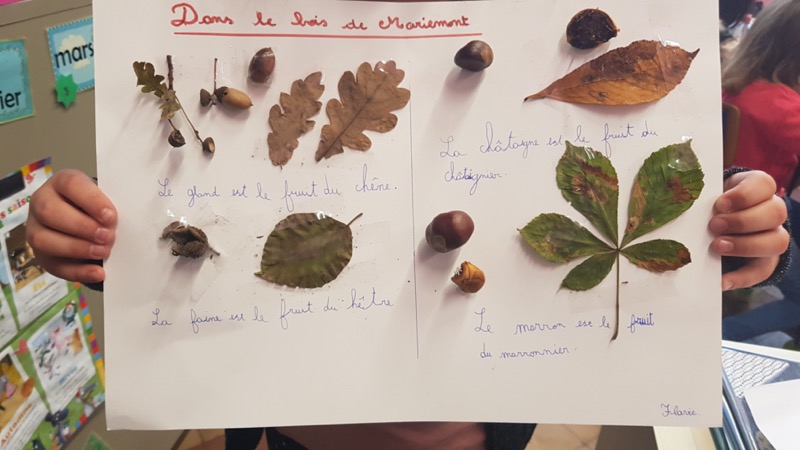 Dans le bois de Mariemont
mars
ier
Le gland est le fruit du chêne.
La châtaigne est le fruit du
châtaignier.
La faine est le fruit du hêtre
Le marron est le fruit
du marronnier.